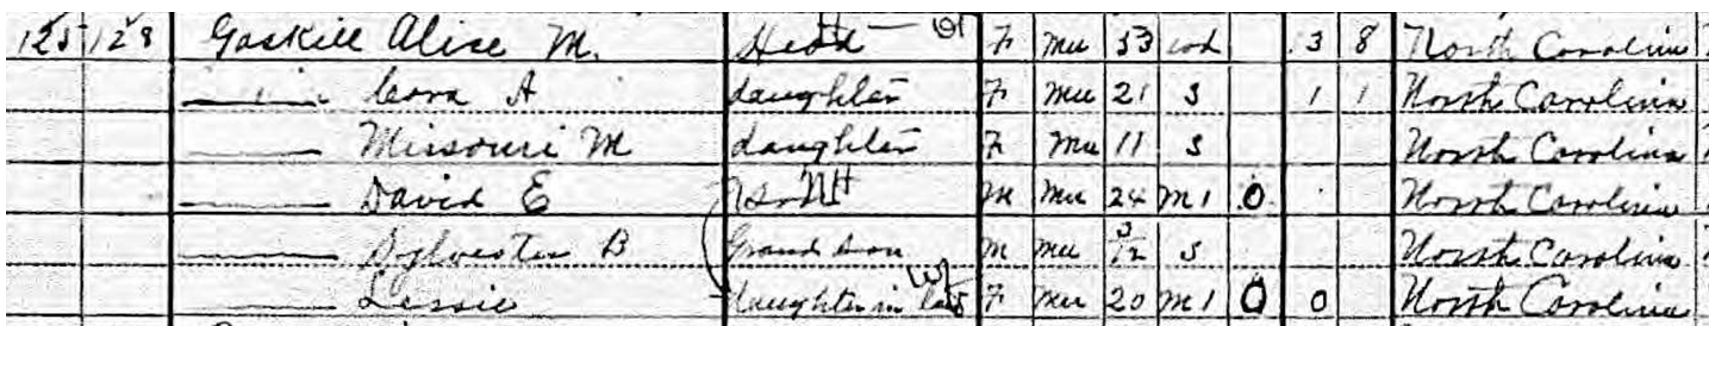 125 128 Gaskill Alise M. Head F Mu 53 wd 3 8 North Carolina
Cora A daughter F Mu 21 S 1 1 North Carolina
Missouri M daughter F Mu 11 S North Carolina
David E Son M Mu 24 M1 0 North Carolina
Sylvester B Grand Son M Mu 3/12 S North Carolina
Lessie daughter in law F Mu 20 M1 0 0 North Carolina